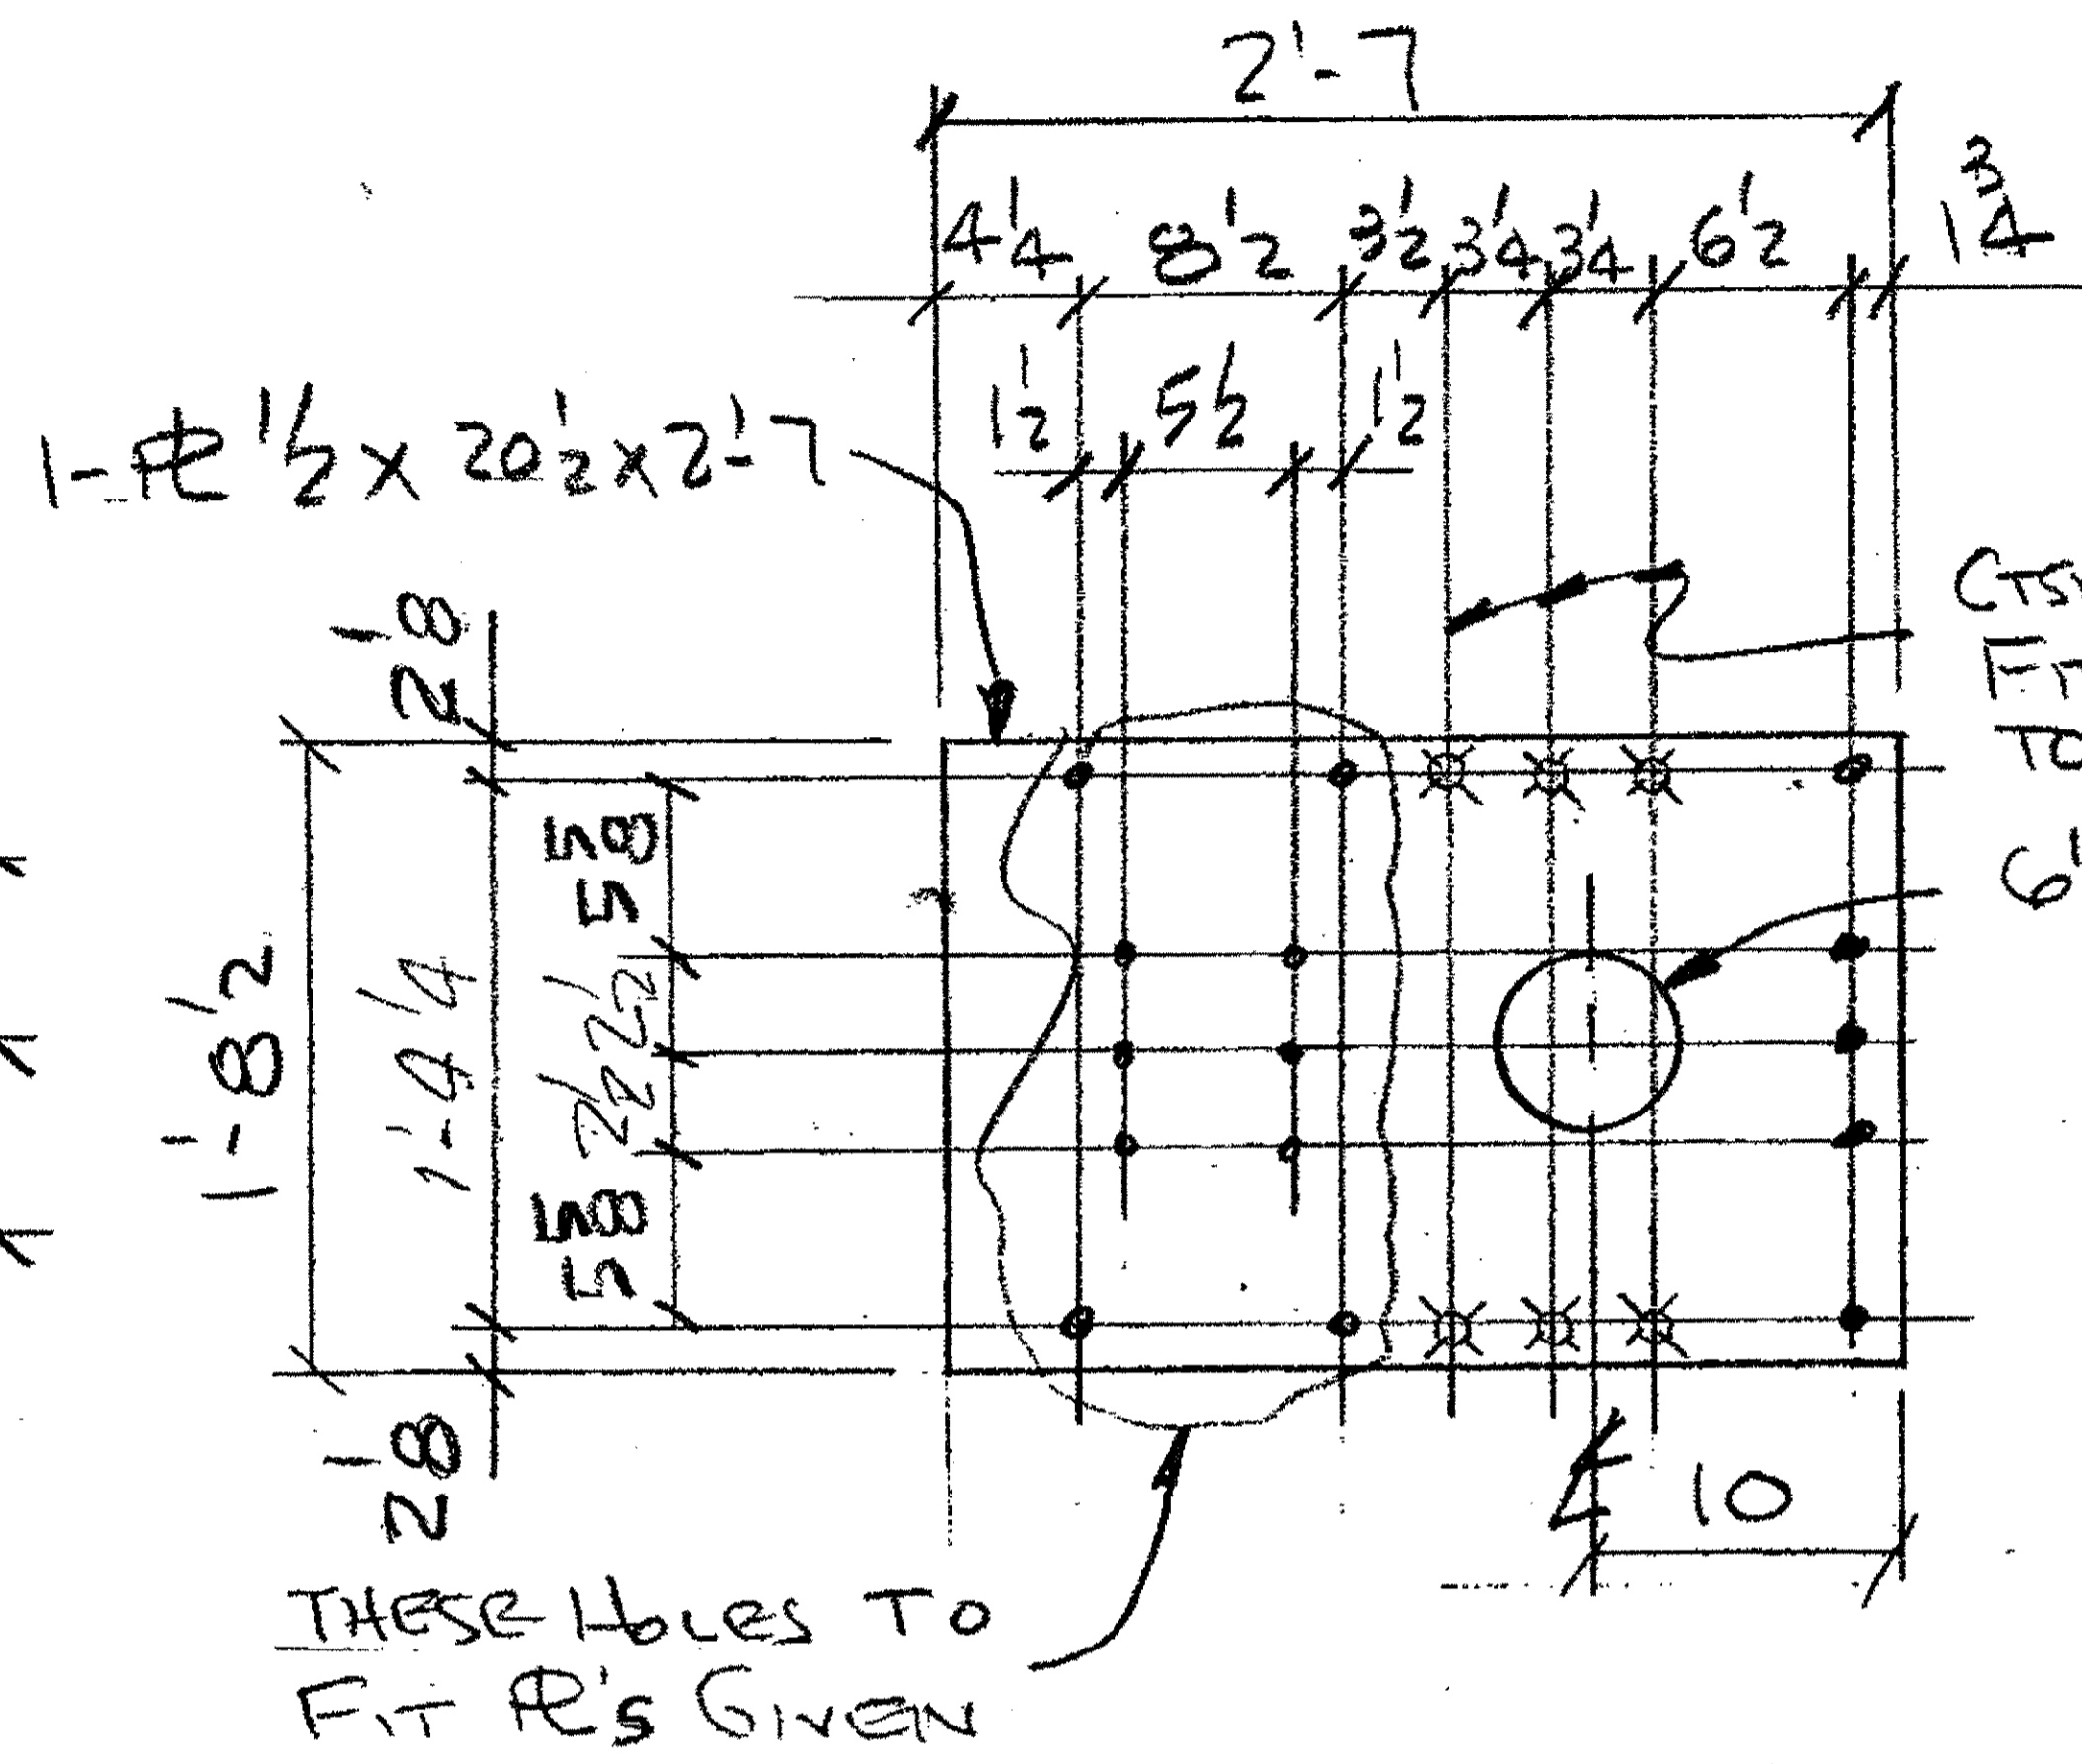 2'-7
4 1/4 8 1/2 3 1/2 3 1/4 3 1/4 6 1/2 1 3/4
1 1/2 5 1/2 1 1/2
1-PL 1/2 x 20 1/2 x 2'-7
CTS
FIT
TO
6
2 1/8
5 5/8
2 1/2
2 1/2
5 5/8
1'-4 1/4
1'-8 1/2
2 1/8
10
THESE HOLES TO
FIT PL'S GIVEN